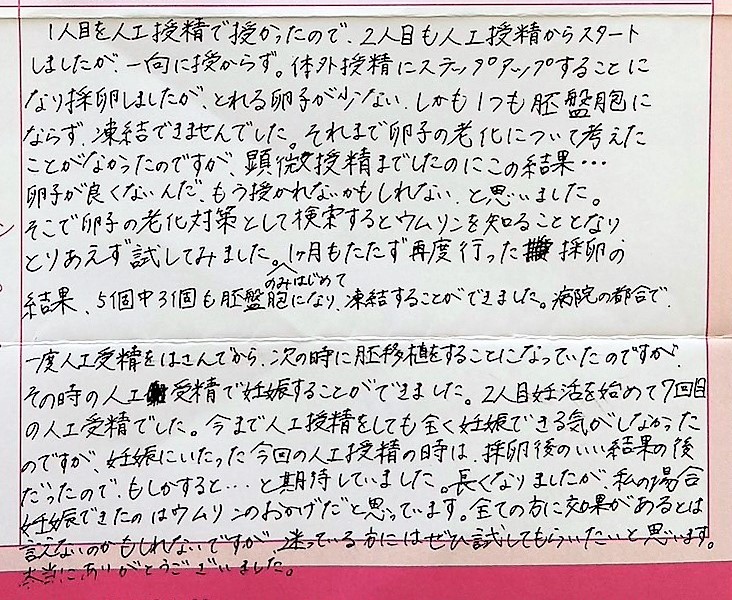 1人目を人工授精で授かったので、2人目も人工授精からスタート
しましたが、一向に授からず。体外授精にステップアップすることに
なり採卵しましたが、とれる卵子が少ない、しかも1つも胚盤胞に
ならず、凍結できませんでした。それまで卵子の老化について考えた
ことがなかったのですが、顕微授精までしたのにこの結果…
卵子が良くないんだ、もう授かれないかもしれない、と思いました。
そこで卵子の老化対策として検索するとウムリンを知ることとなり
とりあえず試してみました。1ヶ月もたたず再度行った採卵の
のみはじめて
結果、5個中3個も胚盤胞になり、凍結することができました。病院の都合で、
一度人工受精をはさんでから、次の時に胚移植をすることになっていたのですが、
その時の人工受精で妊娠することができました。2人目妊活を始めて7回目
の人工受精でした。今まで人工授精をしても全く妊娠できる気がしなかった
のですが、妊娠にいたった今回の人工授精の時は、採卵後のいい結果の後
だったので、もしかすると…と期待していました。長くなりましたが、私の場合
妊娠できたのはウムリンのおかげだと思っています。全ての方に効果があるとは
言えないのかもしれないですが、迷っている方にはぜひ試してもらいたいと思います。
本当にありがとうございました。